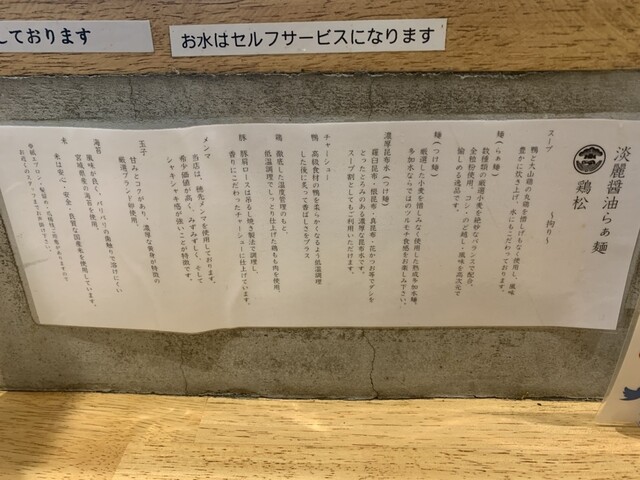 しております
お水はセルフサービスになります
淡麗醤油らぁ麺
鶏松
～拘り～
スープ
鴨と大山鶏の丸鶏を惜しげもなく使用し、風味
豊かに炊き上げ、水にもこだわっております。
麺(らぁ麺)
数種類の厳選小麦を絶妙なバランスで配分。
全粒粉使用。コシ・のど越し・風味を高次元で
愉しめる逸品です。
麺(つけ麺)
厳選した小麦を惜しみなく使用した熟成多加水麺。
多加水ならではのツルモチ食感をお楽しみ下さい。
濃厚昆布水(つけ麺)
羅臼昆布・根昆布・真昆布・花かつお等でダシを
とったとろみのある濃厚な昆布水です。
スープ割としてもご利用いただけます。
チャーシュー
鴨 高級食材の鴨を柔らかくなるよう低温調理
した後に炙って香ばしさをプラス
鶏 徹底した温度管理のもと、
低温調理でしっとり仕上げた鶏もも肉を使用。
豚 豚肩ロースは吊るし焼き製法で調理し、
香りにこだわったチャーシューに仕上げています。
メンマ
当店は、穂先メンマを使用しております。
希少価値が高く、みずみずしく、そして
シャキシャキ感が強いことが特徴です。
玉子
甘みとコクがあり、濃厚な黄身が特徴の
厳選ブランド卵使用。
海苔
風味が良く、パリパリの歯触りで溶けにくい
宮城県産の海苔を使用。
米 米は安心・安全・良質な国産米を使用しています。
お近くのスタッフまでお申し付け下さい。